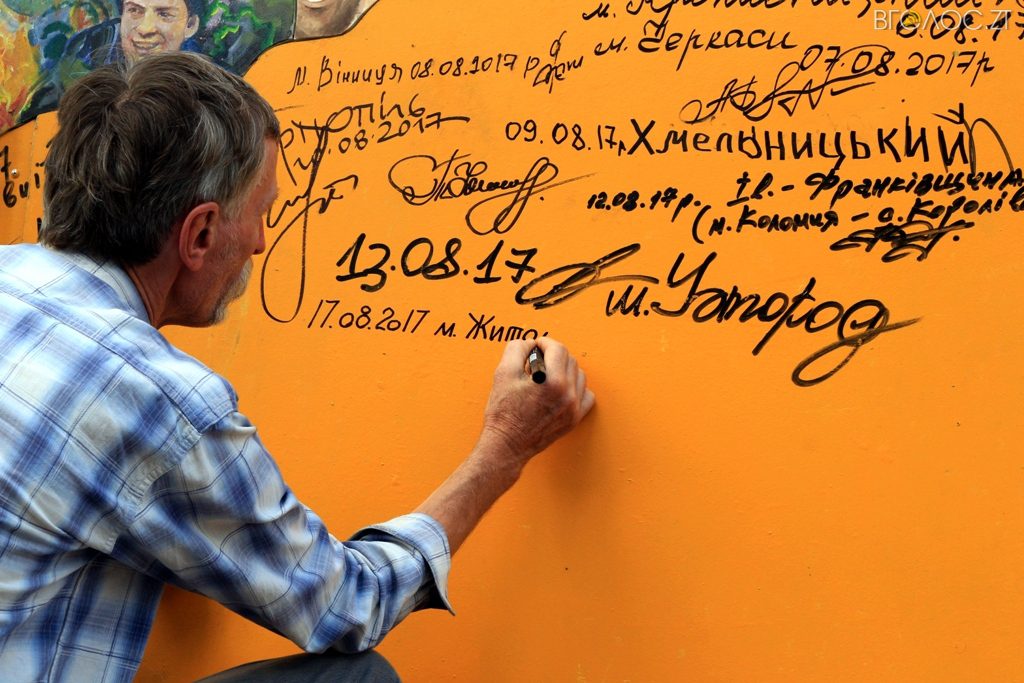 ВГОЛОС.ZT
м.
м. Черкаси
м. Вінниця 08.08.2017р
07.08.2017р
.08.2017
09.08.17р Хмельницький
12.08.17р. Ів.-Франківщина
(м. Коломия - с. Королів
13.08.17 м. Ужгород
17.08.2017 м. Жито